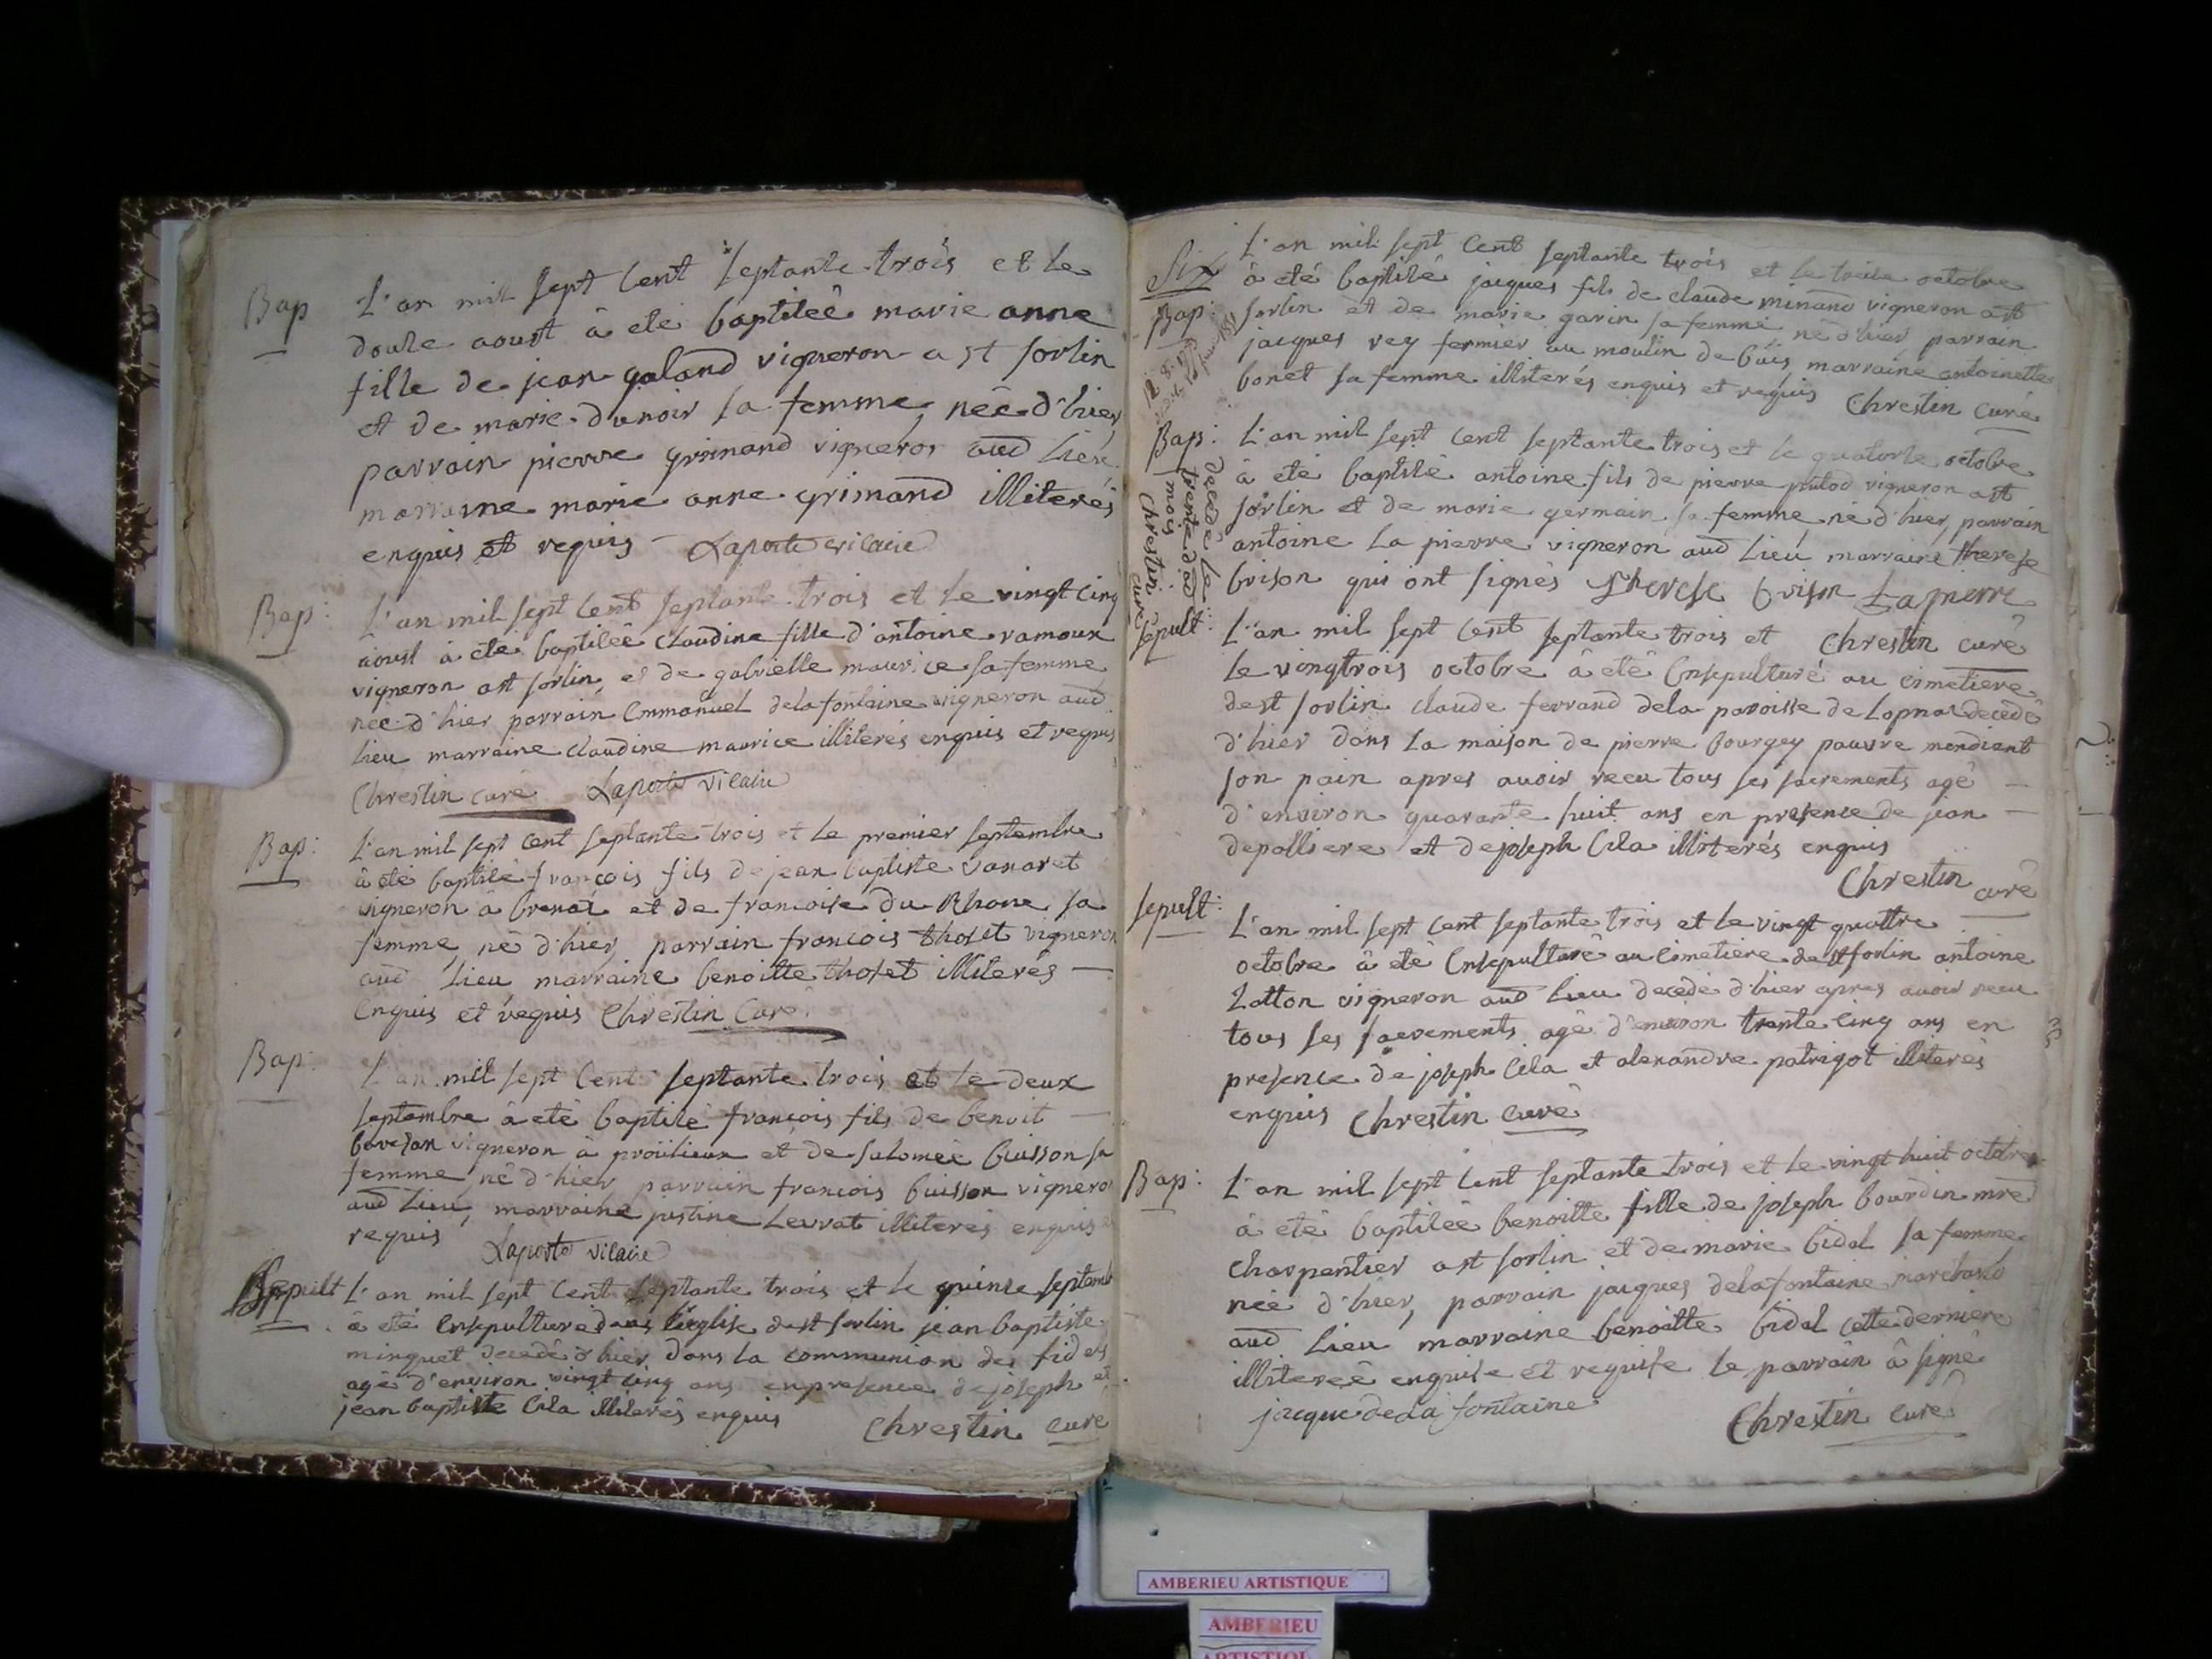 Bap
L'an mil sept cent septante trois et le
douse aoust à eté baptisée marie anne
fille de jean galand vigneron a st sorlin
et de marie dunoir sa femme née d'hier
parrain pierre grimand vigneron aud lieu
marraine marie anne grimand illiterés
enquis et requis Laporte vicaire
Bap:
L'an mil sept cent septante trois et le vingt cinq
aoust à eté baptisée Claudine fille d'antoine ramoux
vigneron a st sorlin et de gabrielle maurice sa femme
née d'hier parrain Emmanuel delafontaine vigneron aud
lieu marraine claudine maurice illiterés enquis et requis
Chrestin curé Laporte vicaire
Bap:
L'an mil sept cent septante trois et le premier septembre
à eté baptisé françois fils de jean baptiste vanaret
vigneron à brenaz et de françoise du Rhone sa
femme, né d'hier, parrain françois thoset vigneron
aud lieu marraine benoitte thoset illiterés
enquis et requis Chrestin Curé
Bap:
L'an mil sept cent septante trois et le deux
septembre à eté baptisé françois fils de benoit
vigneron à proulieux et de salomée buisson sa
femme né d'hier parrain françois buisson vigneron
aud lieu, marraine justine Levrat illiterés enquis et
requis Laporte vicaire
Sepult
L'an mil sept cent septante trois et le quinse septembre
à eté Ensepulturé dans l'église de st sorlin jean baptiste
minguet decedé d'hier dans la communion des fidels
agé d'environ vingt cinq ans en presence de joseph et
jean baptiste Cila illiterés enquis Chrestin curé
Six
Bap:
L'an mil sept cent septante trois et le treise octobre
à eté baptisé jacques fils de claude minand vigneron a st
sorlin et de marie garin sa femme né d'hier parrain
jacques rey fermier au moulin de buis marraine antoinette
bonet sa femme illiterés enquis et requis Chrestin curé
Bap:
decedé le
trente dud
mois
Chrestin
curé
L'an mil sept cent septante trois et le quatorse octobre
à eté baptisé antoine fils de pierre putod vigneron a st
sorlin et de marie germain sa femme né d'hier, parrain
antoine La pierre vigneron aud lieu marraine therese
brison qui ont signés Therese brison Lapierre
Sepult:
L'an mil sept cent septante trois et Chrestin curé
le vingtrois octobre à eté Ensepulturé au cimetiere
de st sorlin claude ferrand dela paroisse de Lopnaz decedé
d'hier dans la maison de pierre bourgey pauvre mendient
son pain apres avoir receu tous ses sacrements agé
d'environ quarante huit ans en presence de jean
depolliere et de joseph Cila illiterés enquis
Chrestin curé
Sepult:
L'an mil sept cent septante trois et le vingt quattre
octobre à eté Ensepulturé au Cimetiere de st sorlin antoine
Lotton vigneron aud lieu decedé d'hier apres avoir receu
tous ses sacrements agé d'environ trente cinq ans en
presence de joseph Cila et alexandre patrigot illiterés
enquis Chrestin Curé
Bap:
L'an mil sept cent septante trois et le vingt huit octobre
à eté baptisée benoitte fille de joseph bourdin mre
charpentier a st sorlin et de marie bidal sa femme
née d'hier, parrain jacques delafontaine marchand
aud lieu marraine benoitte bidal cette derniere
illiterée enquise et requise le parrain à signé
jacque de la fontaine Chrestin curé
AMBERIEU ARTISTIQUE
AMBERIEU
ARTISTIQUE